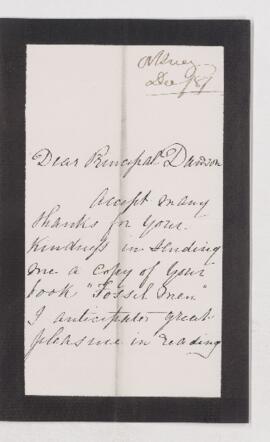 Dear Principal Dawson
Accept many
thanks for your
kindness in sending
me a copy of your
book "Fossil men"
I anticipate great
pleasure in reading